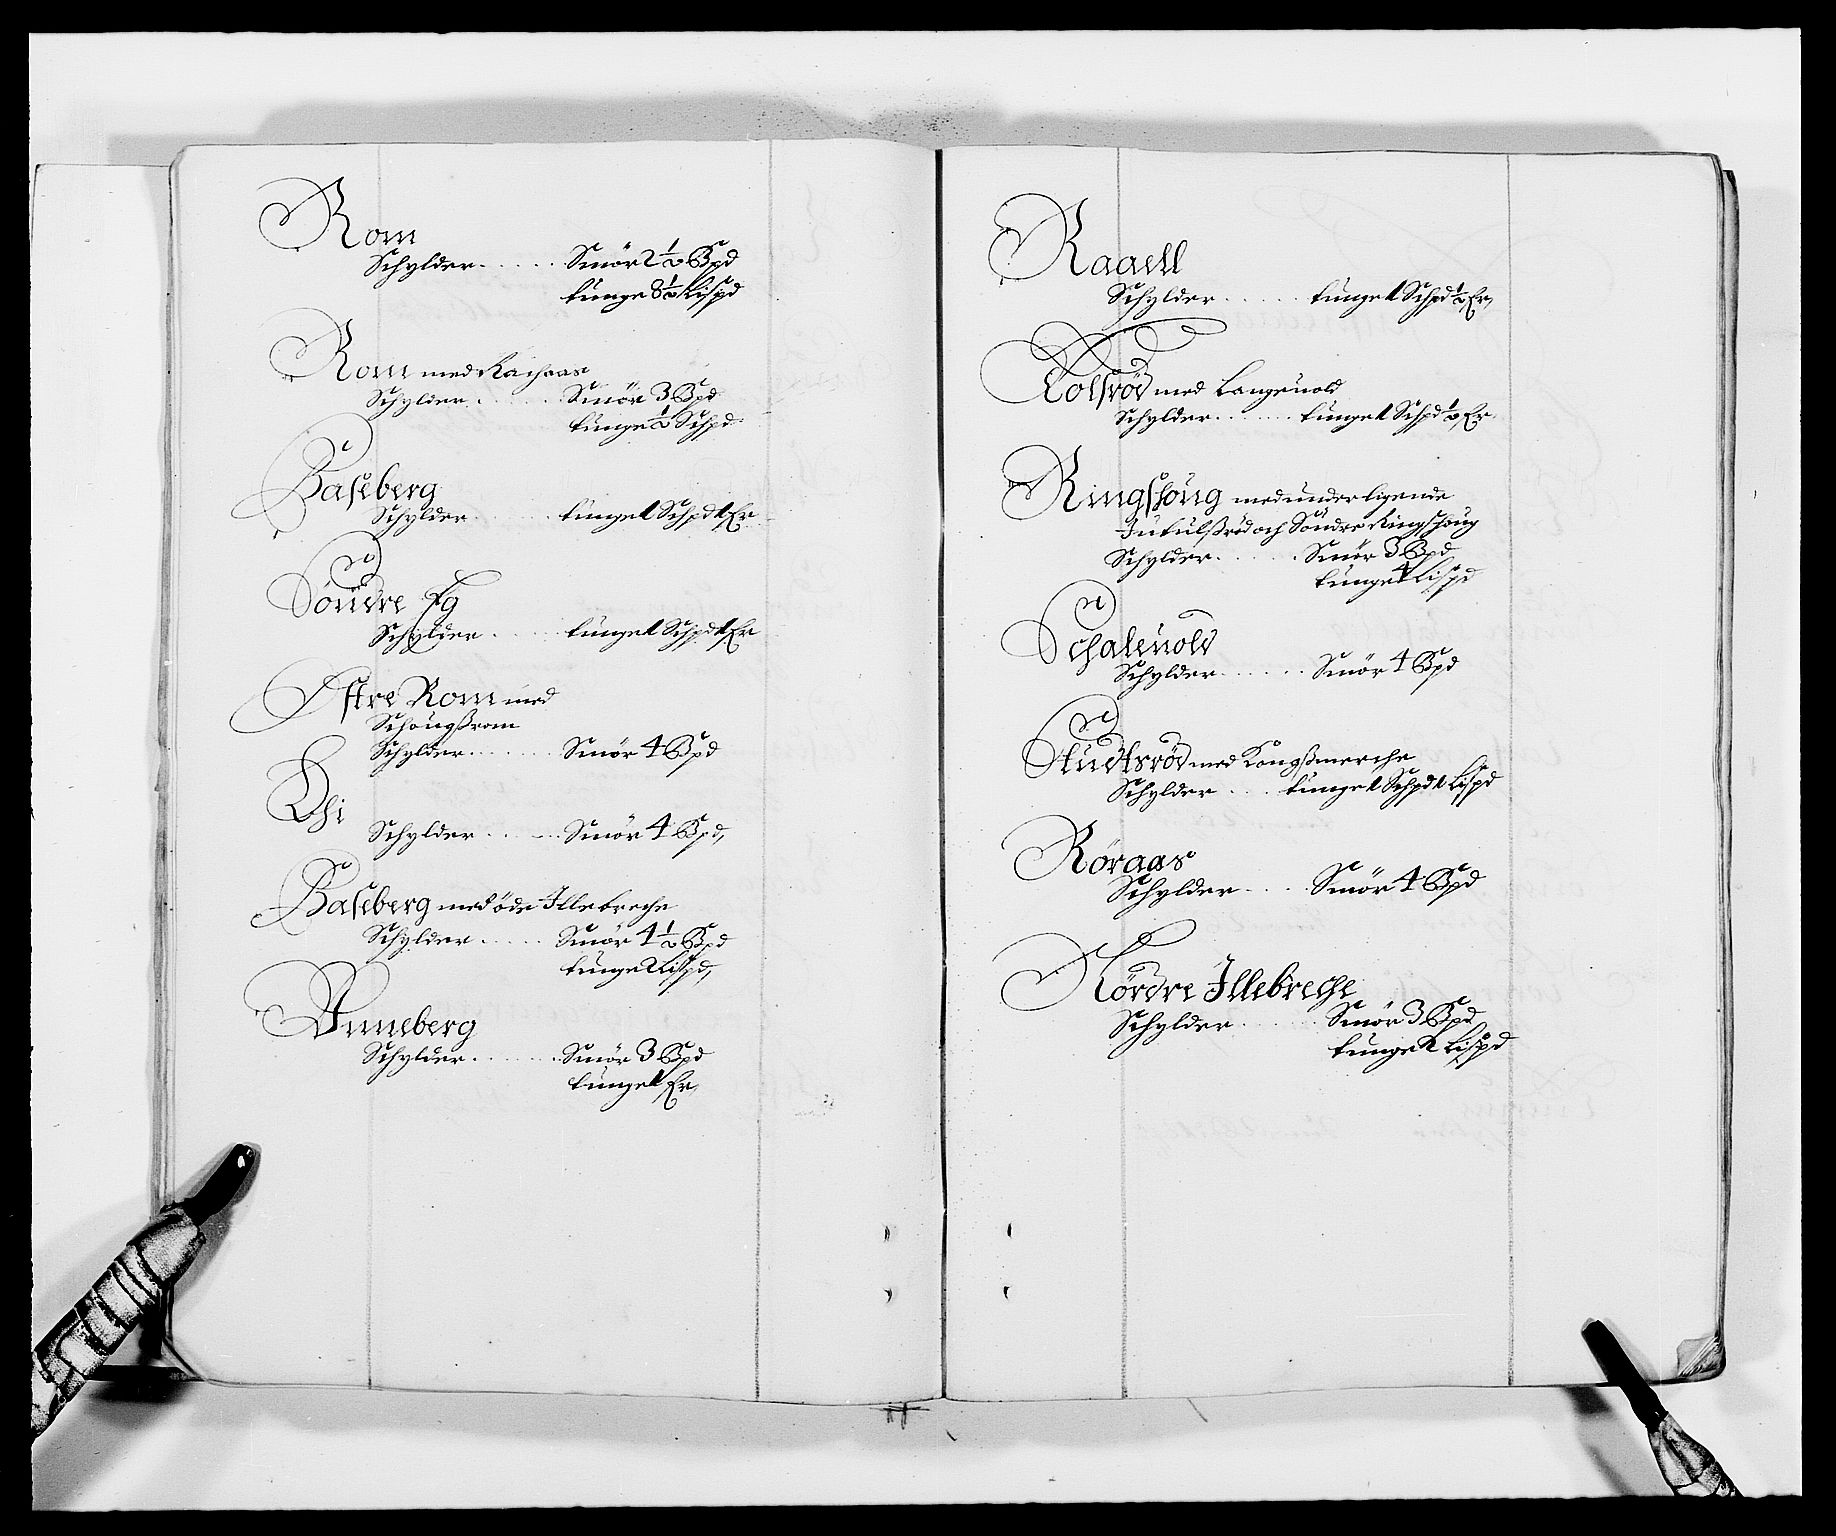 Rom
Schylder . . . . . Smör 2 1/2 Bpd
tunge 8 1/2 Lispd
Rom med Rachaas
Schylder . . . . . . Smör 3 Bpd
tunge 1/2 Schpd
Baseberg
Schylder . . . . . tunge 1 Schpd 1 Er
Söndre Eg
Schylder . . . . . tunge 1 Schpd 1 Er
Östre Rom med
Schougßrom
Schylder . . . . . . . Smör 4 Bpd
Ohi
Schylder . . . . . Smör 4 Bpd,
Baseberg med öde Illebreche
Schylder . . . . . Smör 4 1/2 Bpd
tunge 2 Lispd,
Anneberg
Schylder . . . . . . . Smör 3 Bpd
tunge 1 Er,
Raaell
Schylder . . . . . . tunge 1 Schpd 1/2 Er,
Tolsröd med Langeuold
Schylder . . . . . . tunge 1 Schpd 1/2 Er
Ringshoug med underligende
Jutulßröd och Söndre Ringshoug
Schylder . . . . . . Smör 3 Bpd
tunge 4 Lispd
Schaleuold
Schylder . . . . . . Smör 4 Bpd
Studtsröd med Kongßmerche
Schylder . . . . tunge 1 Schpd 1 Lispd
Röraas
Schylder . . . . . Smör 4 Bpd
Nördre Illebreche
Schylder . . . . . . Smör 3 Bpd
tunge 2 Lispd